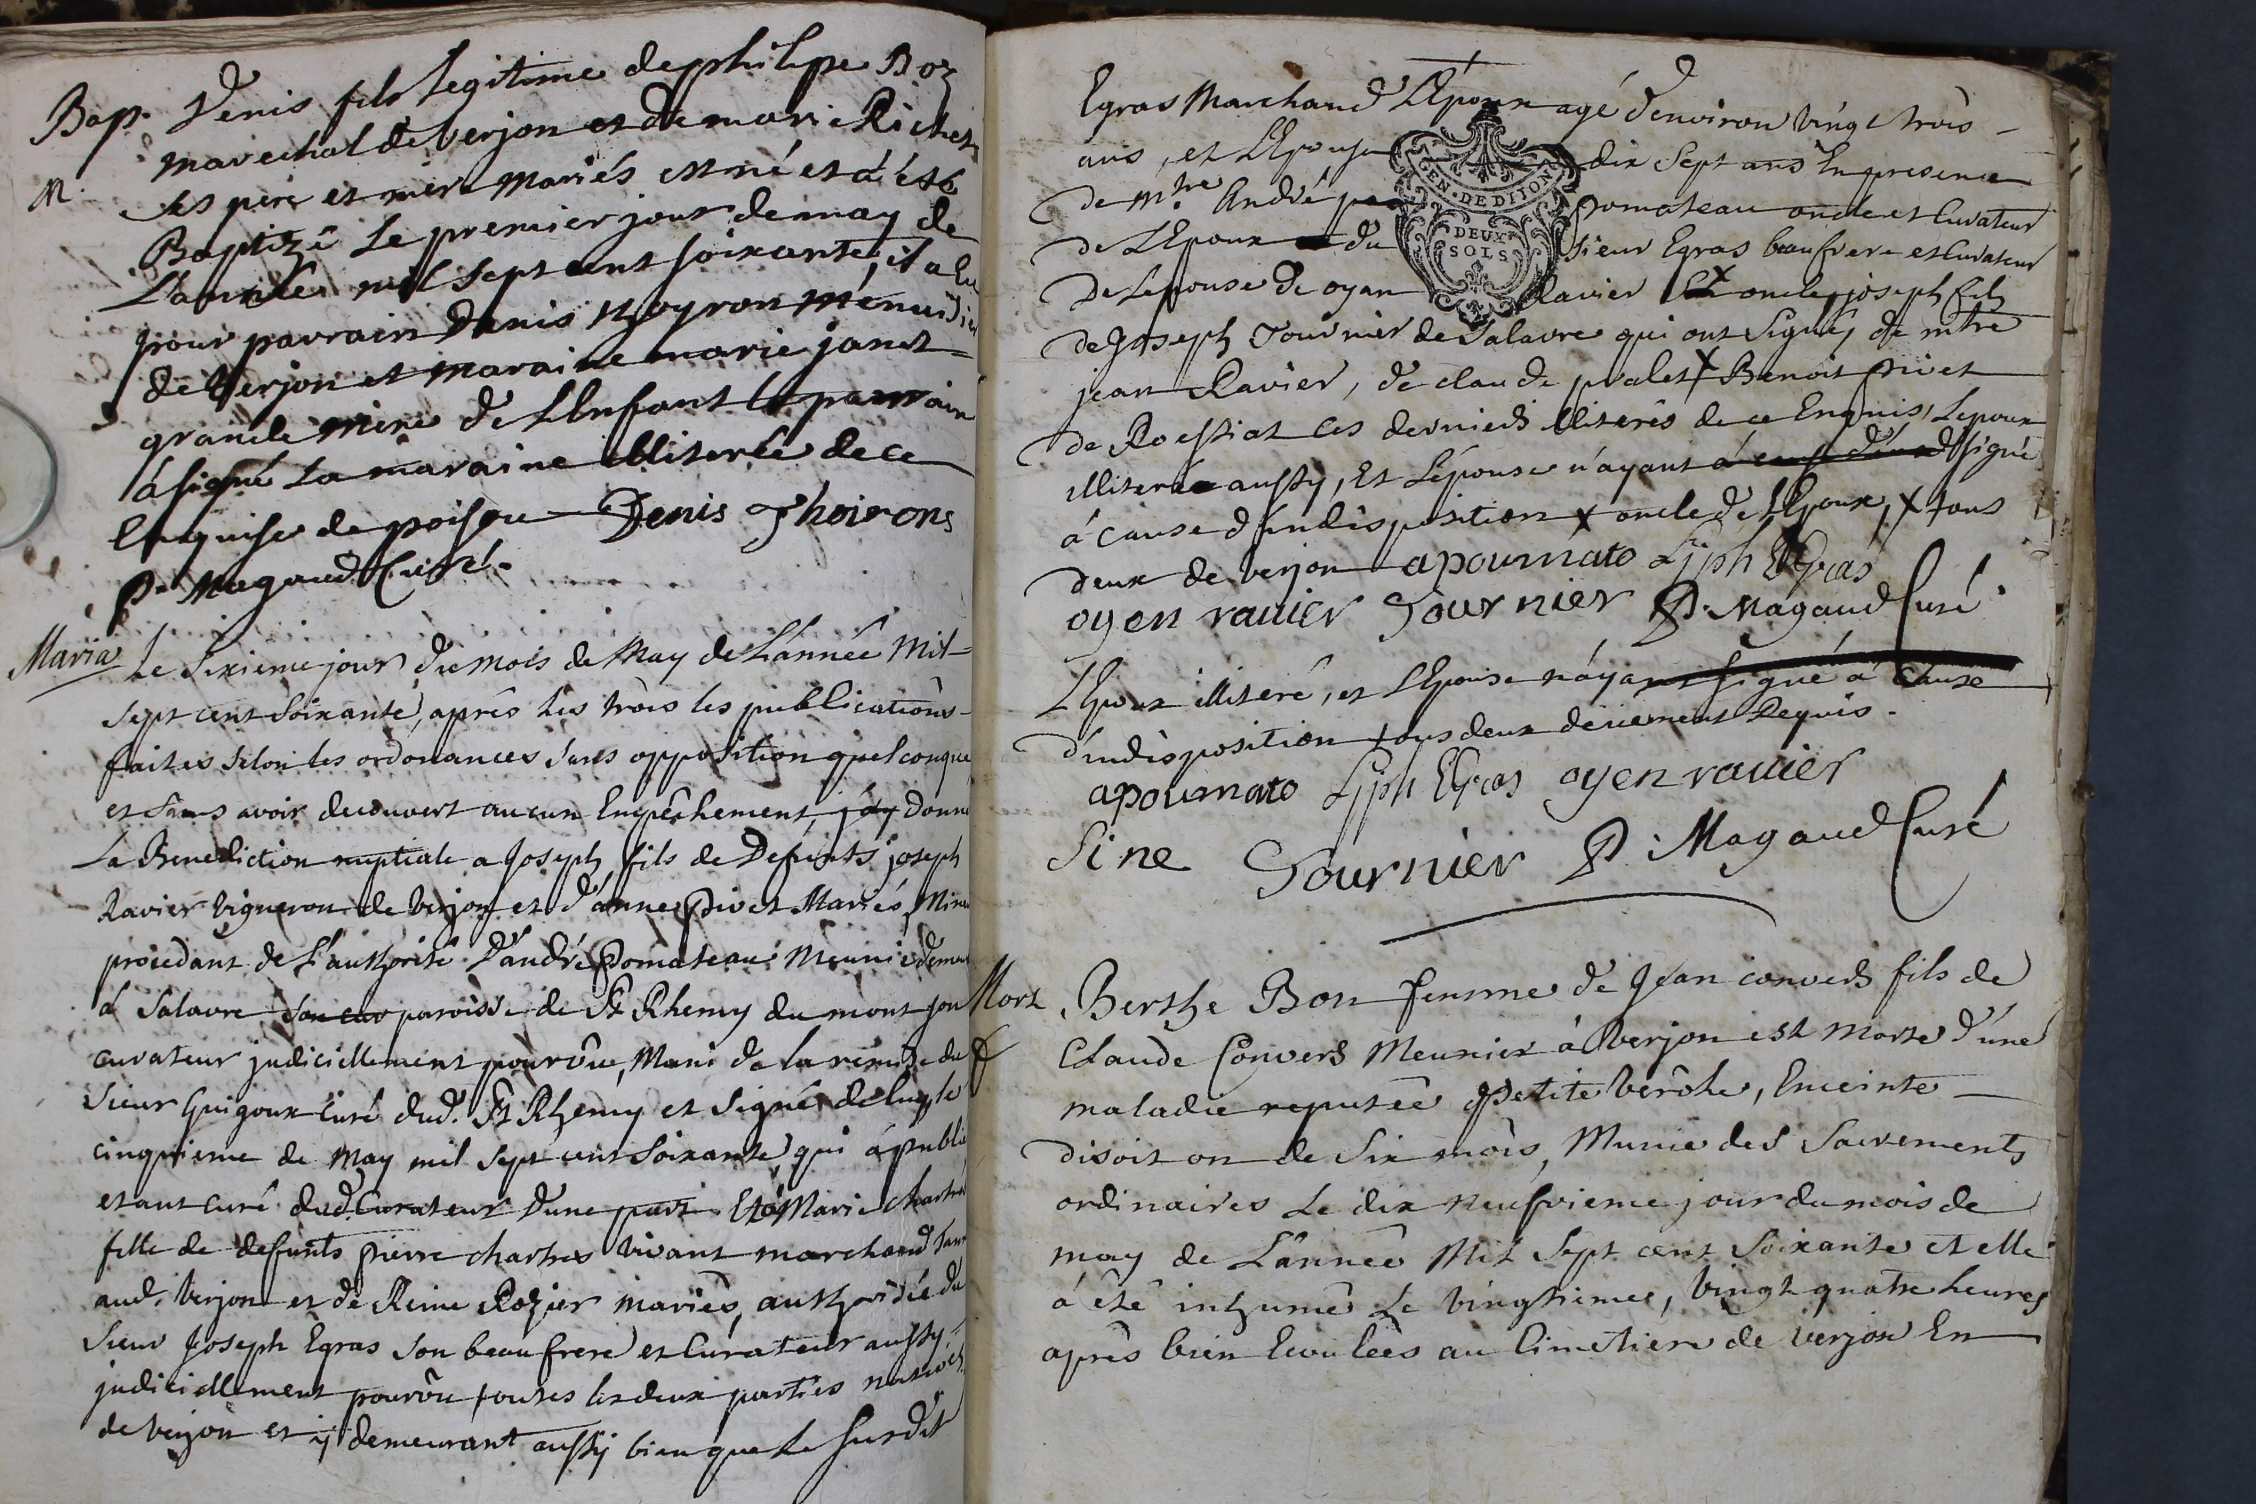 Bap. Denis fils legitime de philipe Boz
marechal de verjon et de marie Richet
M. ses pere et mere mariés est né et a été
Baptizé le premier jour de may de
L'année mil sept cent soixante, il a eu
pour parrain Denis Thoyron menuisier
de verjon et maraine marie janet
grande mere de L'Enfant le parrain
á signé La maraine illiterée de ce
Enquise de poisou Denis Thoirons
P. Magaud Curé.
Maria Le Sixieme jour du mois de May de L'année Mil
Sept cent Soixante, aprés les trois les publications
faites selon les ordonances sans opposition quelconque
et sans avoir decouvert aucun Empêchement, j'ay donné
La Benediction nuptiale a Joseph fils de Defunts joseph
Ravier vigneron de verjon et d'anne Pivet Mariés, Mineur
procedant de L'authorité D'andré Pomateau Meunié
á Salavre paroisse de St Rhemy du mont son
curateur judiciellement pourvûe, Muni de la remise du
Sieur Guigoux Curé dud. St Rhemy et Signée de luy le
cinquieme de May mil Sept cent Soixante, qui á publié
etant curé dud. Curateur d'une part Et á Marie Chartres
fille de defunts pierre chartres vivant marchand
aud. Verjon et de Reine Rozier mariés, authorisée du
Sieur Joseph Egras Son beau frere et Curateur aussy
judiciellement pourvûe toutes les deux parties
de verjon et ÿ demeurant aussy bien que le surdit
Egras Marchand L'Epoux agé d'environ vingt trois
ans, et L'Epouse dix Sept ans En presence
de Mtre André Pomateau oncle et Curateur
de L'Epoux du Sieur Egras beaufrere et Curateur
de L'epouse de oyan Ravier oncle, joseph fils
de Joseph Tournier de Salavre qui ont Signés, de mtre
jean Ravier, de claude pralet X Benoit Pivet
de Roissiat Ces derniers illiterés de ce Enquis, L'epoux
illiteré aussy, Et L'épouse n'ayant á signé
á cause d'indisposition X oncle de L'Epoux, X tous
deux de verjon apoumato Ljph EGras
oyen rauier Tournier P. Magaud Curé
L'Epoux illiteré, et L'Epouse n'áyant signé á Cause
d'indisposition tous deux deüement Requis.
apoumato Ljph EGras oyen rauier
Sine Tournier P. Magaud Curé
Mort Berthe Bon femme de Jean convers fils de
Claude Convers Meunier à Verjon est morte d'une
maladie reputée Petite Verôle, Enceinte
disoit on de Six mois, Munie des Sacrements
ordinaires Le dix neufvieme jour du mois de
may de L'année Mil Sept cent Soixante et elle
á été inhumé Le vingtieme, vingt quatre heures
aprés bien Ecoulées au Cimetiere de Verjon En
GEN. DE DIJON
DEUX
SOLS